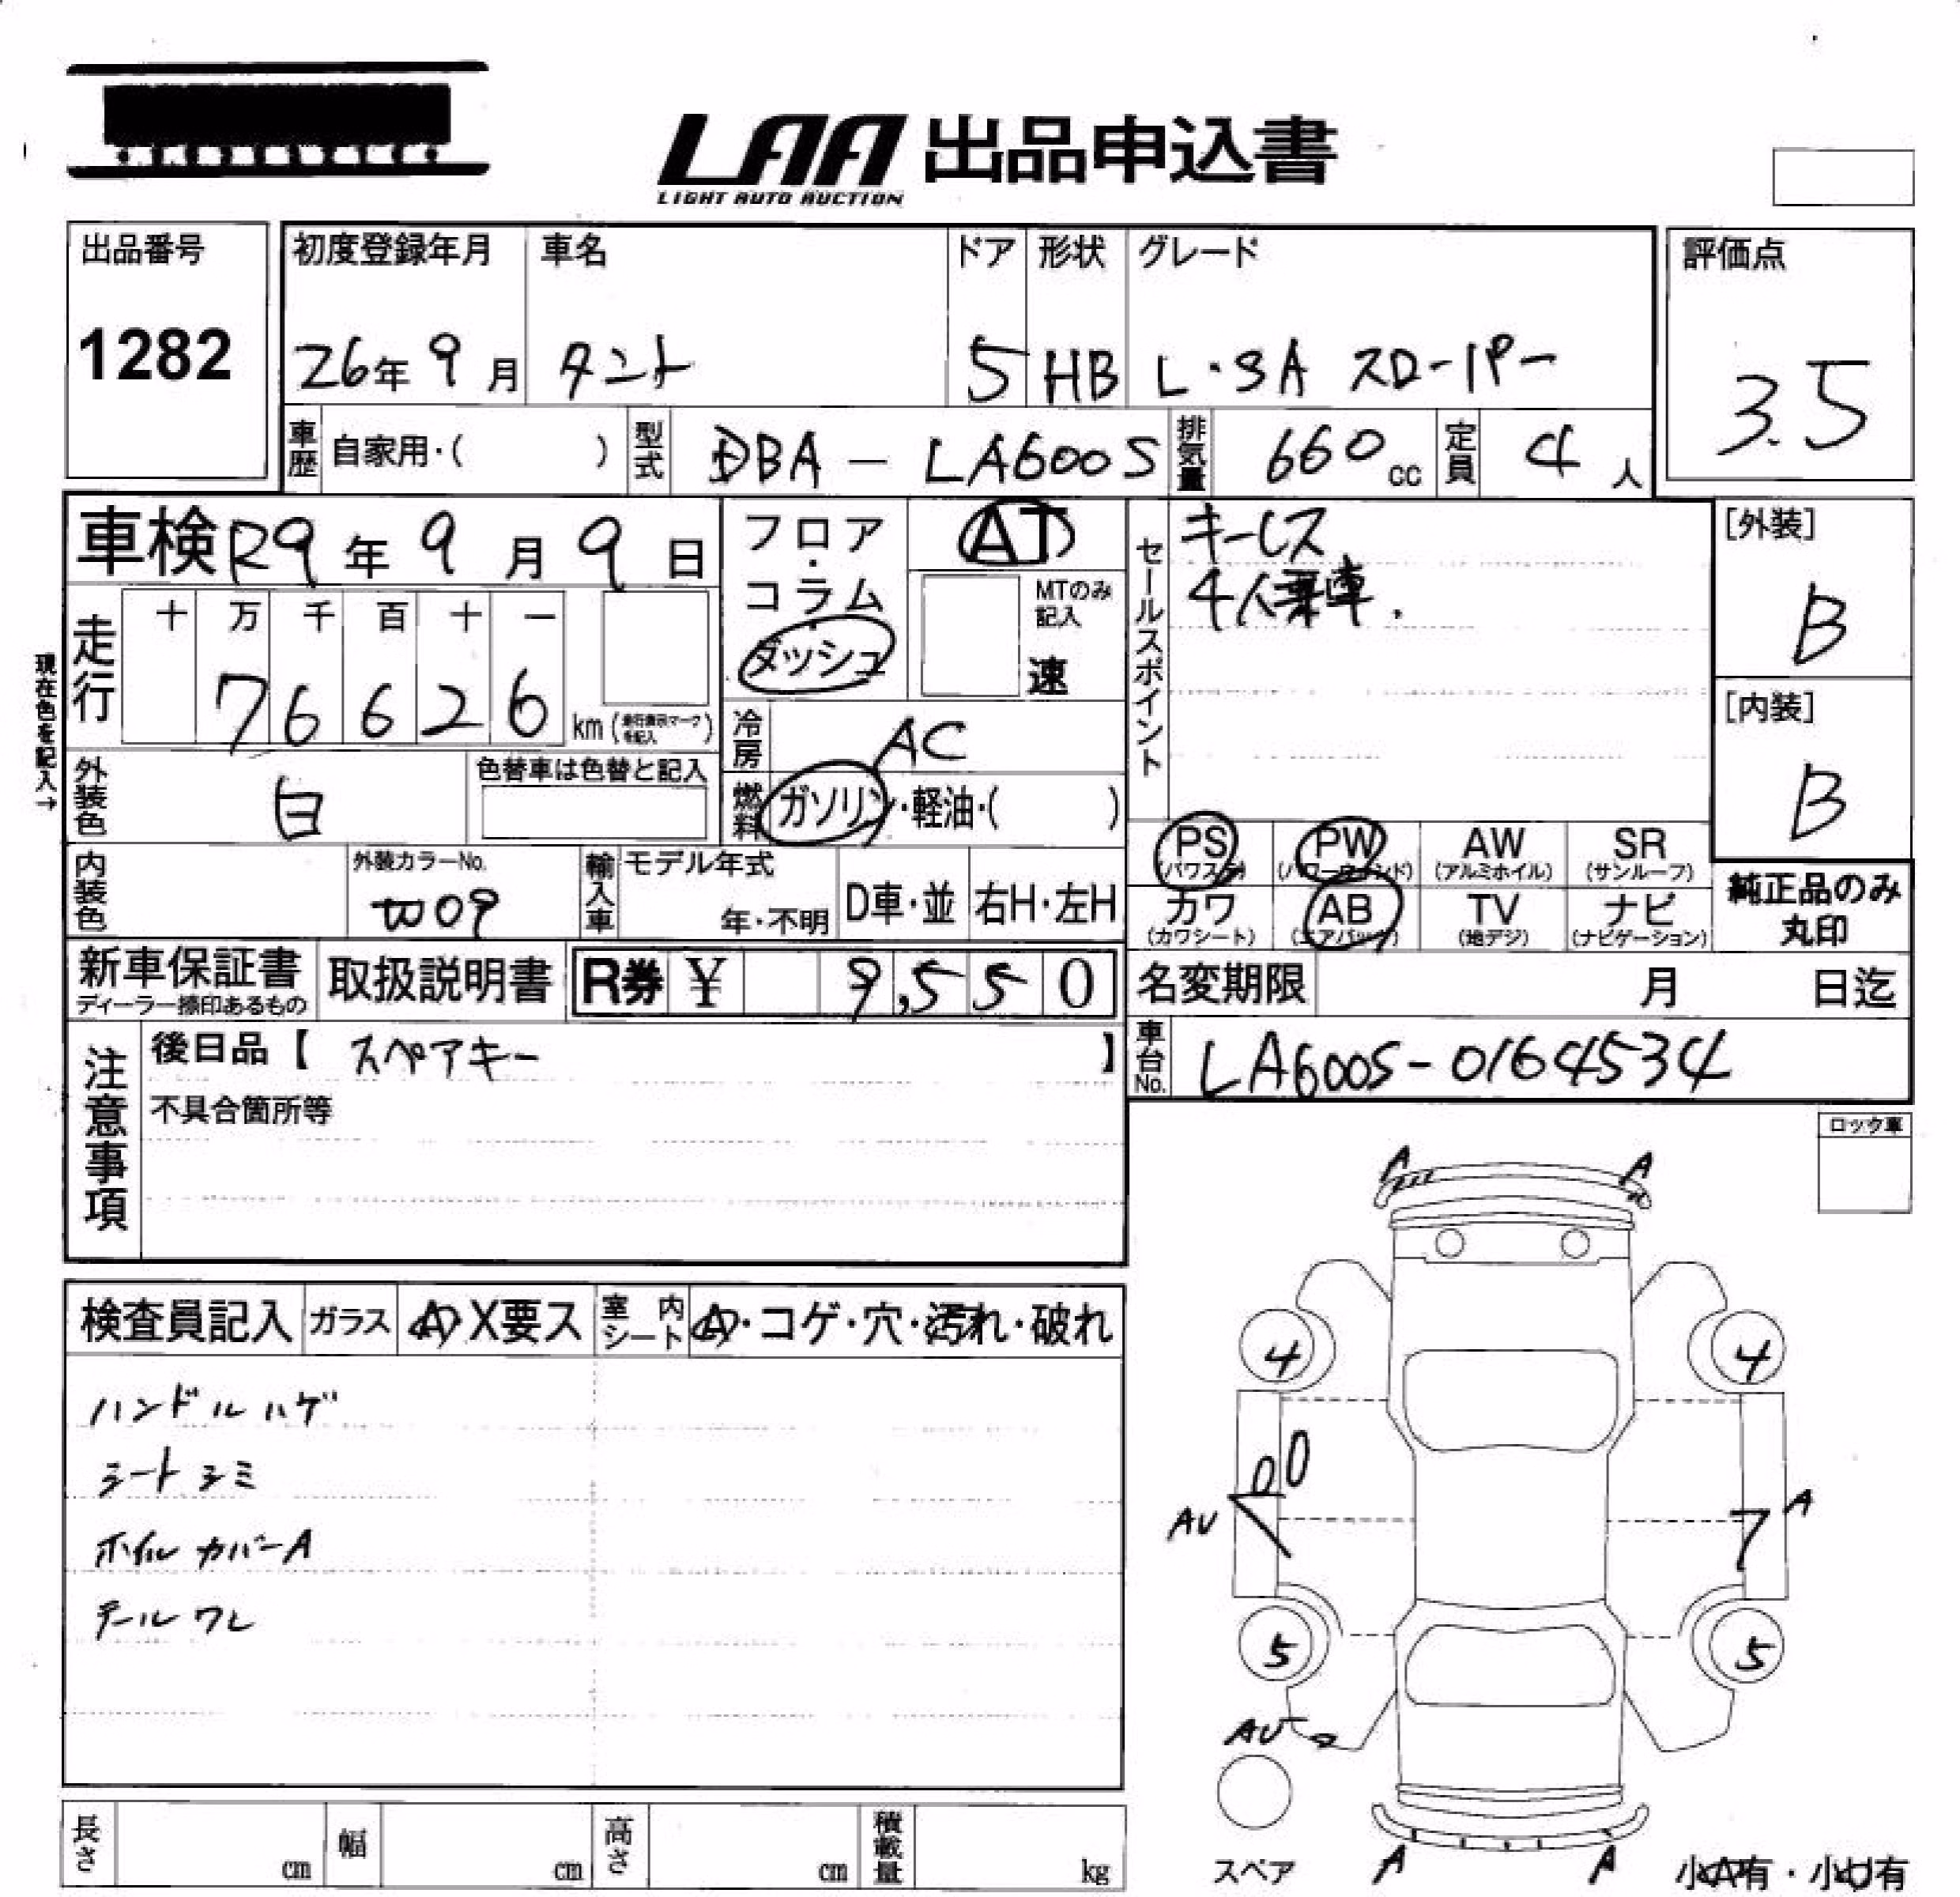 LAA 出品申込書
LIGHT AUTO AUCTION
出品番号
1282
初度登録年月
26年 9月
車名
タント
ドア
5
形状
HB
グレード
L・SA スローパー
評価点
3.5
車歴 自家用・( )
型式 DBA - LA600S
排気量 660 cc
定員 4 人
車検 R9年 9月 9日
走行
十 万 千 百 十 一
7 6 6 2 6 km
現在色を記入→
フロア・コラム・ダッシュ
AT
MTのみ記入
速
冷房 AC
燃料 ガソリン・軽油・( )
セールスポイント
キーレス
4人乗車.
[外装]
B
[内装]
B
外装色 白
色替車は色替と記入
内装色
外装カラーNo.
W09
輸入車
モデル年式
年・不明
D車・並
右H・左H
PS (パワステ)
PW (パワーウインド)
AW (アルミホイル)
SR (サンルーフ)
カワ (カワシート)
AB (エアバック)
TV (地デジ)
ナビ (ナビゲーション)
純正品のみ
丸印
新車保証書
ディーラー捺印あるもの
取扱説明書
R券 ¥ 9,550
名変期限 月 日迄
車台No. LA600S-0164534
注意事項
後日品【 スペアキー 】
不具合箇所等
ロック車
検査員記入 ガラス A X要ス
室内シート A・コゲ・穴・汚れ・破れ
ハンドルハゲ
シートシミ
ホイルカバーA
テールワレ
A A
4 4
AU
A
5 5
AU
スペア
A A
小A有・小U有
長さ cm
幅 cm
高さ cm
積載量 kg